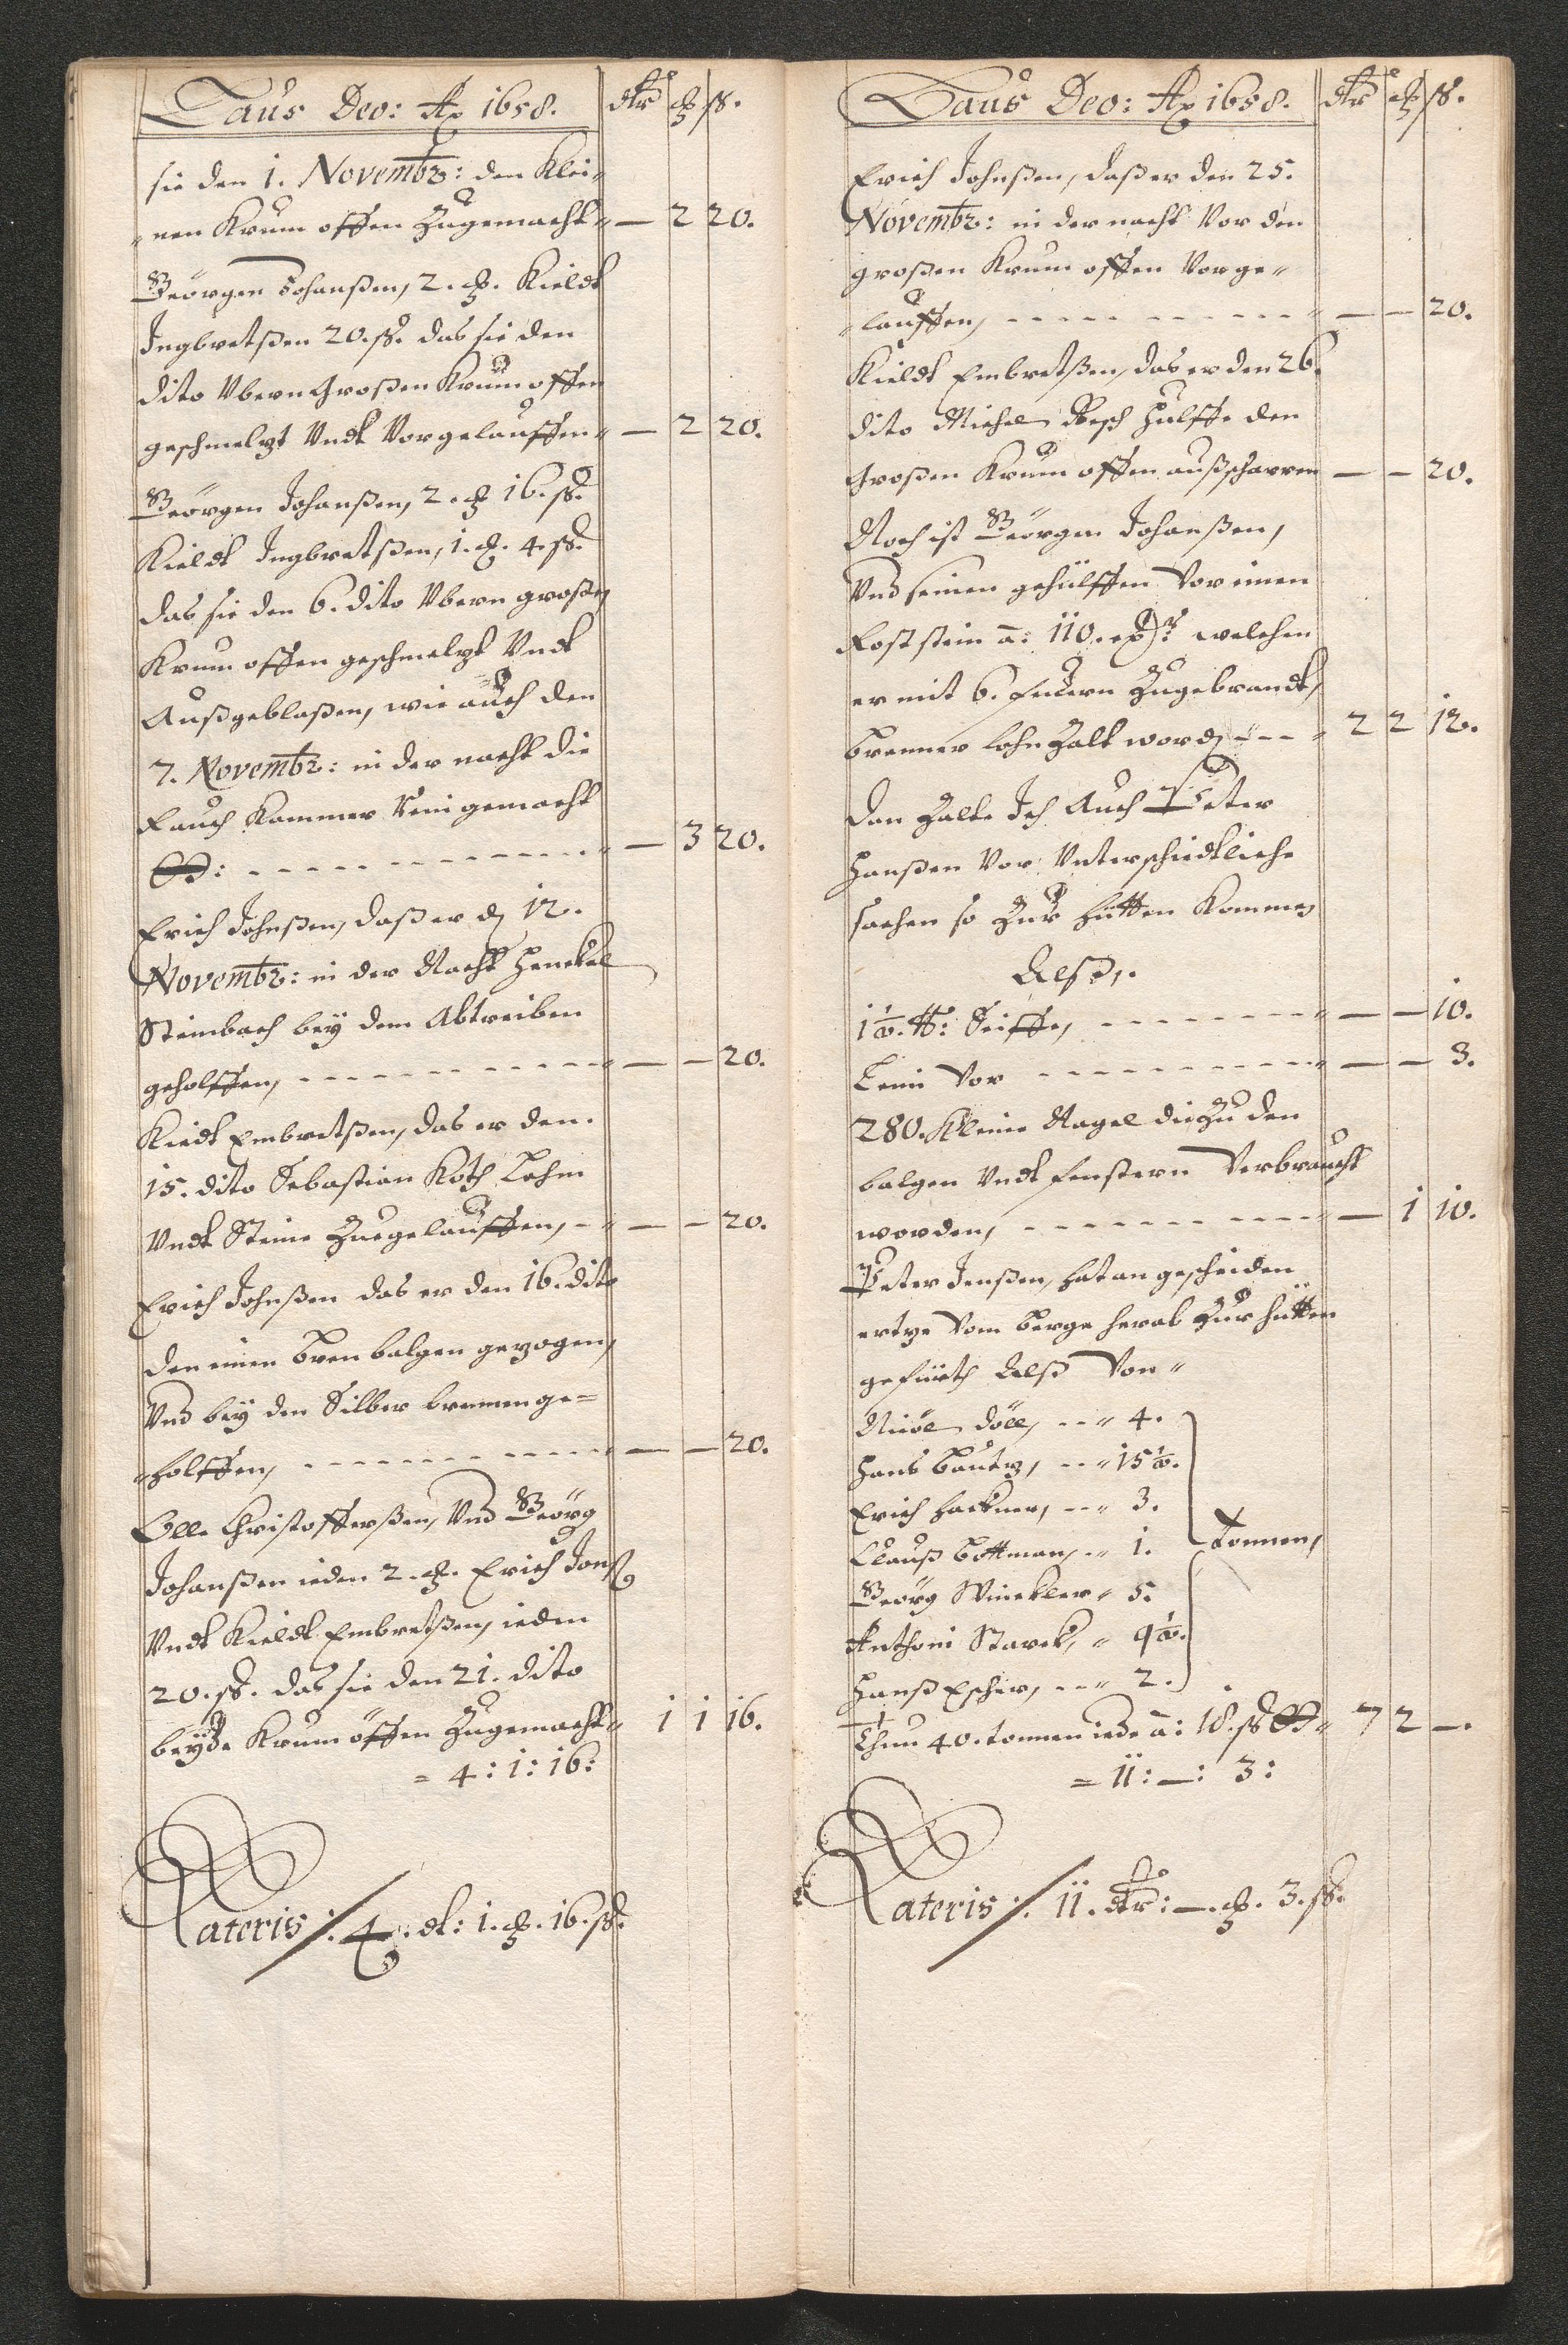 Laus Deo: Ao 1658. | dlr | ₰ | ß.
sie den 1. Novembr: den Klei-
-nen Krum offen Zugemacht — 2 20.
Geörgen Johanßen, 2. ₰. Kieldt
Ingbretßen 20. ß. das sie den
dito Vbern Großen Krum offen
geschmelzt Vndt Vorgelauffen — 2 20.
Geörgen Johanßen, 2. ₰ 16. ß.
Kieldt Ingbretßen, 1. ₰. 4. ß.
das sie den 6. dito Vbern großen
Krum offen geschmelzt Vndt
Außgeblaßen, wie auch den
7. Novembr: in der nacht die
Rauch Kammer Rein gemacht
— 3 20.
Erich Johnßen, daß er den 12.
Novembr: in der Nacht Henckel
Steinbach bey dem Abtreiben
geholffen, — — 20.
Kiedt Embretßen, das er den.
15. dito Sebastian Koch Lehm
Vndt Steine Zuegelauffen, — — 20.
Erich Johnßen das er den 16. dito
den einen bren balgen gezogen,
Vnd bey den Silber brennen ge-
-holffen, — — 20.
Olle Christofferßen, Vnd Geörg
Johanßen ieden 2. ₰. Erich Jonß
Vndt Kieldt Embretßen, ieden
20. ß. das sie den 21. dito
beyde Krum öffen Zugemacht 1 1 16.
= 4: 1: 16:
Lateris /: 4. dl: 1. ₰. 16. ß.
Laus Deo: Ao 1658. | dlr | ₰ | ß.
Erich Johnßen, daß er den 25.
Novembr: in der nacht Vor den
großen Krum offen Vorge-
-lauffen, — — 20.
Kieldt Embretßen, das er den 26.
dito Michel Resch Hülffe den
Großen Krum offen außscharren — — 20.
Noch ist Geörgen Johanßen,
Vnd seinen gehülffen Vor einen
Rost stein a: 110. welchen
er mit 6. feuern Zugebrandt,
brenner lohn Zalt worden 2 2 12.
Dan Zalte Ich Auch Peter
Hanßen Vor Vnterschiedtliche
sachen so Zur hütten Kommen
Alß,.
1½. ℔: Seiffe, — — 10.
Leim Vor — — 3.
280. Kleine Nagel die Zu den
balgen Vndt fenstern Verbraucht
worden, — 1 10.
Peter Jenßen, hat an gescheiden
ertze Vom berge herab Zur hütten
gefürth Alß Von
Niröl döll, 4.
Hans bautz, 15½.
Erich Hackner, 3.
Clauß bottman, 1. Tonnen,
Geörg Winckler 5.
Anthoni Starck, 9½.
Hanß Escher, 2.
Thun 40. tonnen iede a: 18. ß 7 2 —.
= 11: —: 3:
Lateris /: 11. dlr: —. ₰. 3. ß.